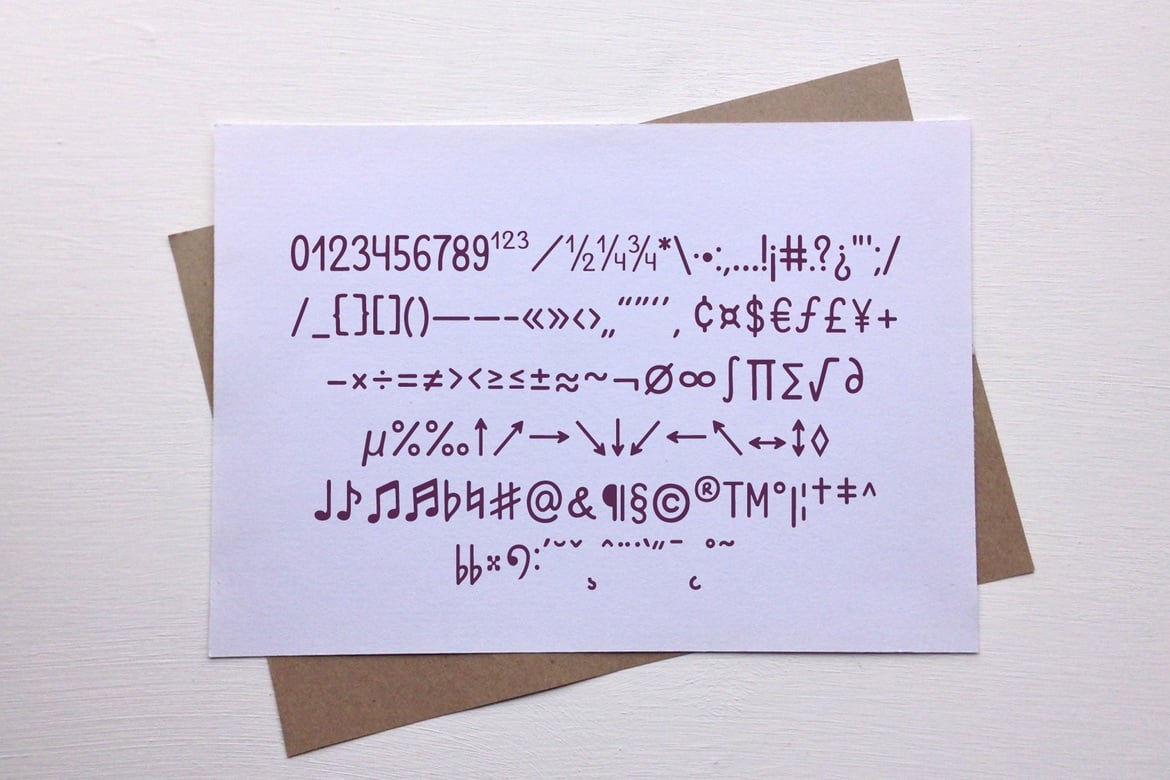 0123456789¹²³ ⁄½¼¾*\·•:,…!¡#.?¿"';/
/_{}[]()—–-«»‹›„“”‘’‚ ¢¤$€ƒ£¥+
−×÷=≠><≥≤±≈~¬∅∞∫∏∑√∂
µ%‰↑↗→↘↓↙←↖↔↕◊
♩♪♫♬♭♮♯@&¶§©®™°|¦†‡^
𝄫𝄪𝄢´˘ˇ¸ˆ¨˙`˝¯˛˚˜